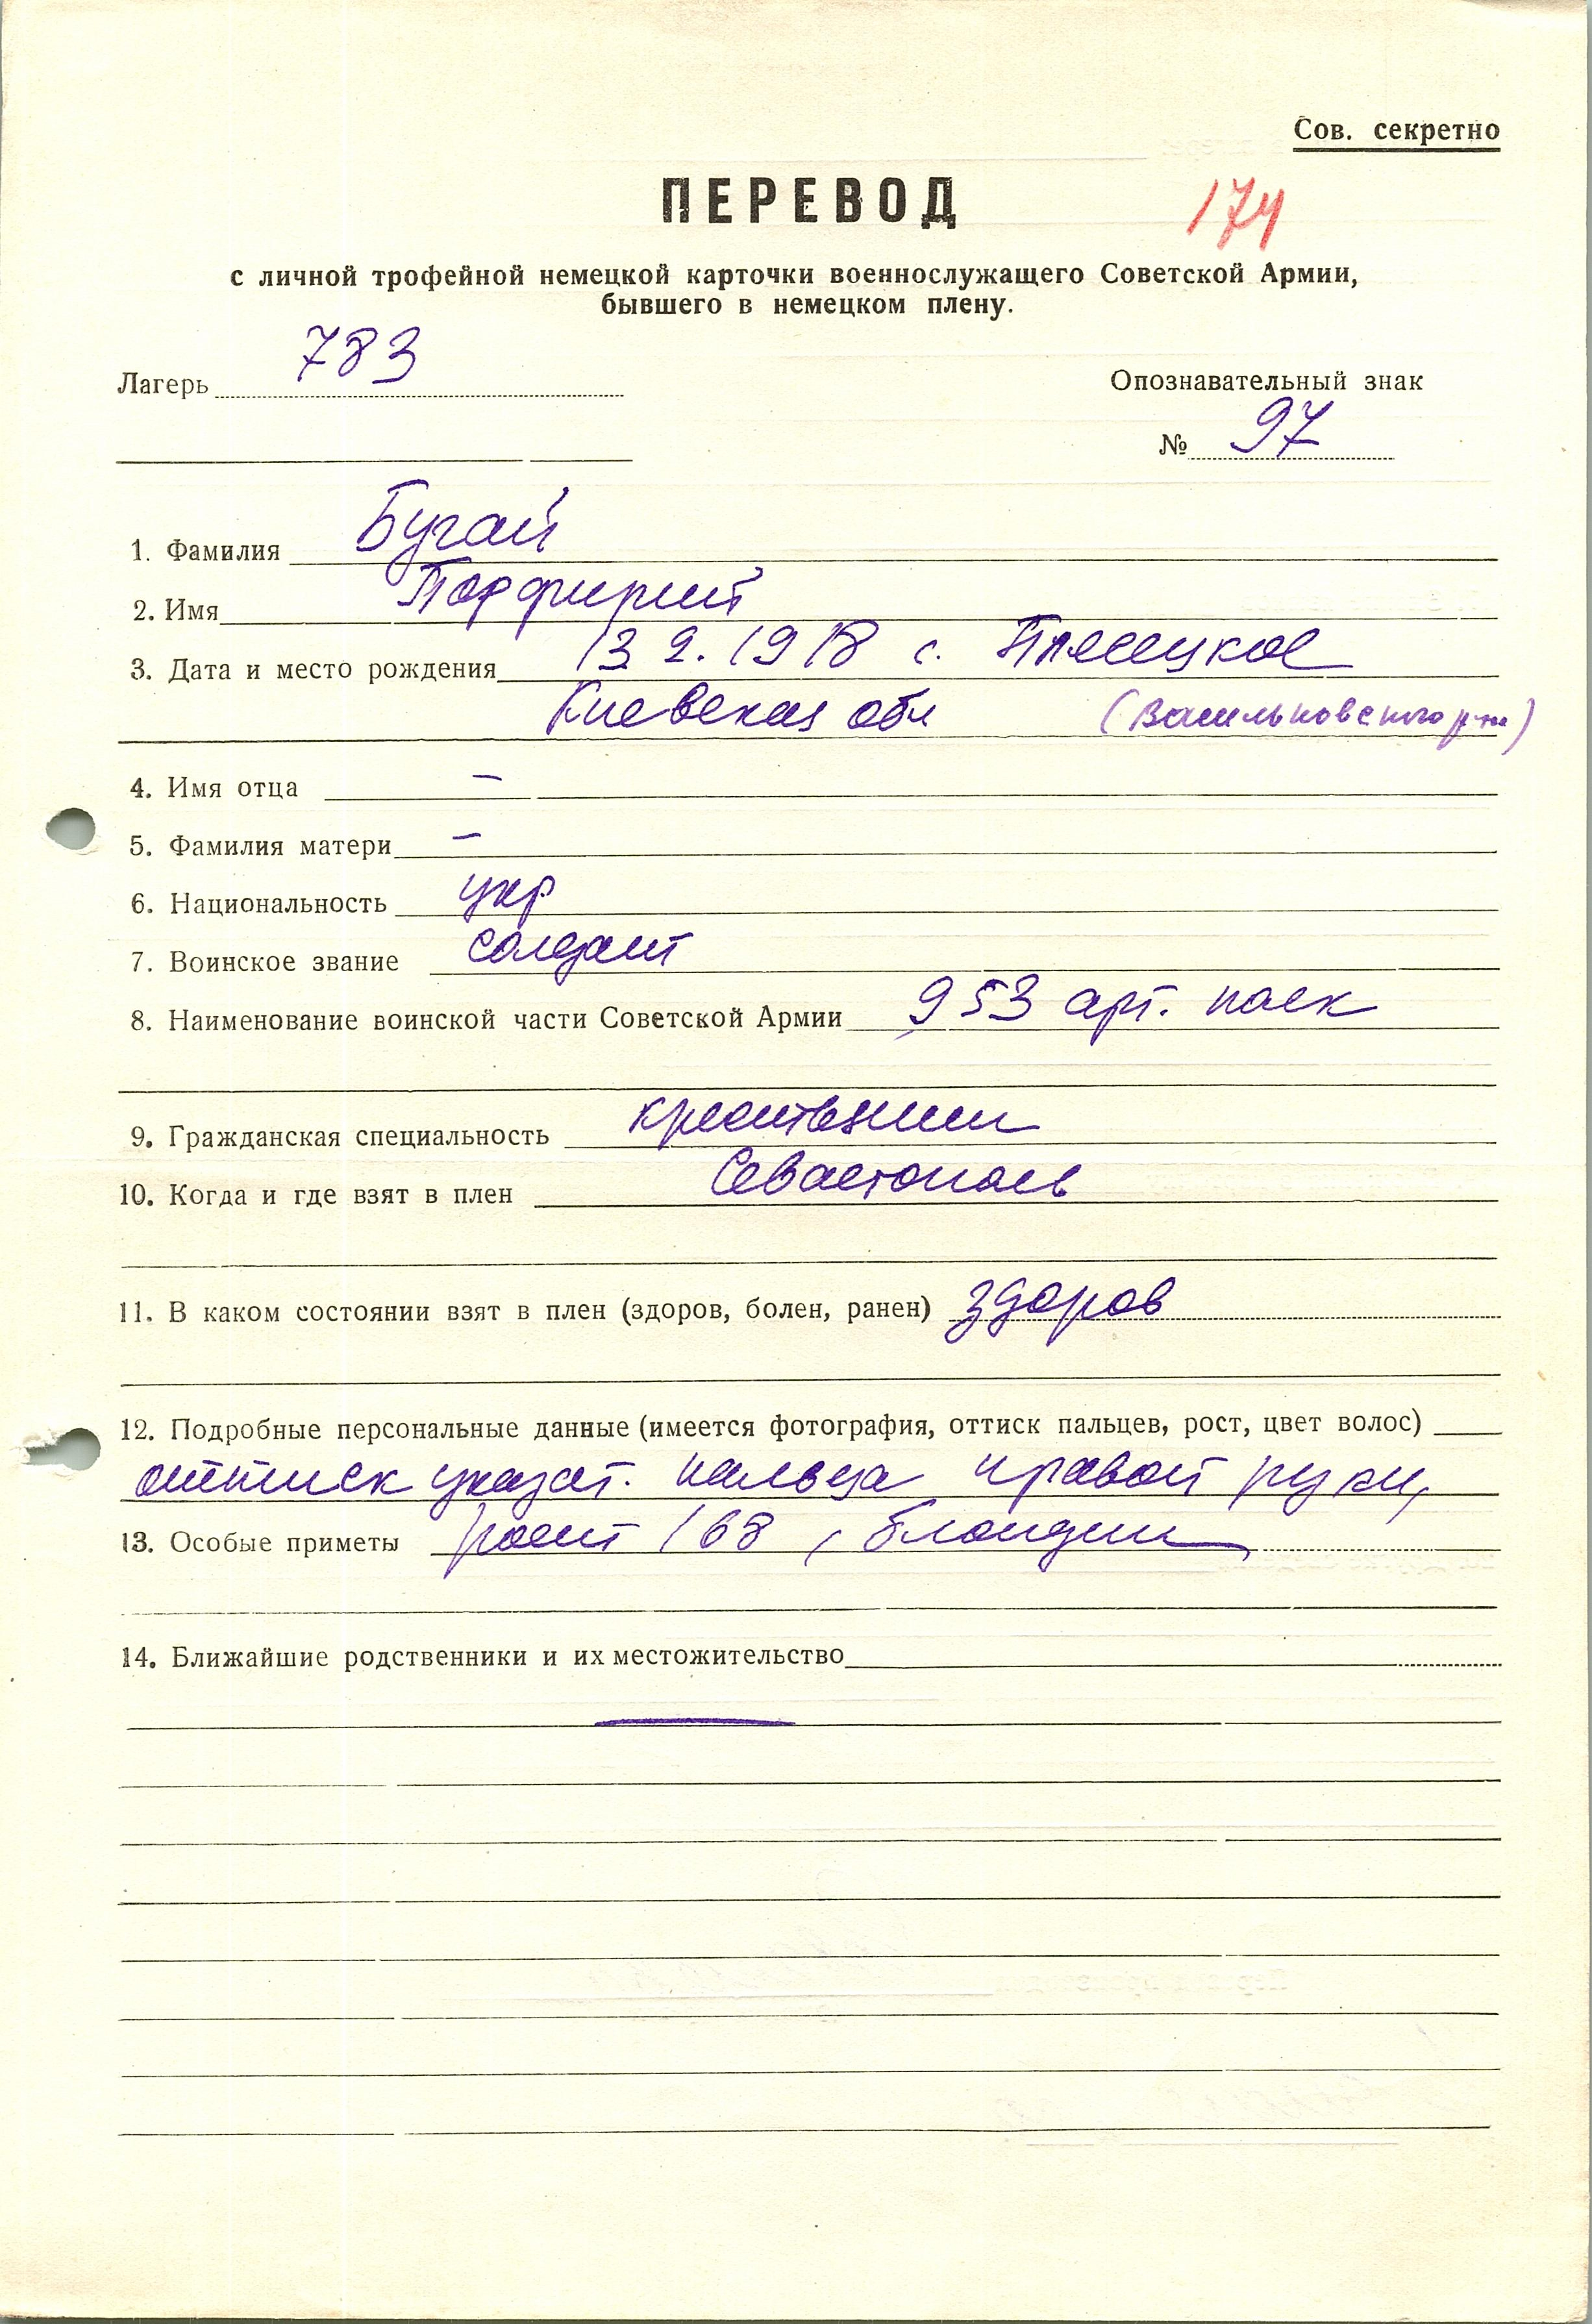 Сов. секретно
ПЕРЕВОД
174
с личной трофейной немецкой карточки военнослужащего Советской Армии,
бывшего в немецком плену.
Лагерь 783
Опознавательный знак
№ 97
1. Фамилия Бугай
2. Имя Порфирий
3. Дата и место рождения 13 2. 1918 с. Плесецкое
Киевская обл (Васильковского р-на)
4. Имя отца —
5. Фамилия матери —
6. Национальность укр
7. Воинское звание солдат
8. Наименование воинской части Советской Армии 953 арт. полк
9. Гражданская специальность крестьянин
10. Когда и где взят в плен Севастополь
11. В каком состоянии взят в плен (здоров, болен, ранен) здоров
12. Подробные персональные данные (имеется фотография, оттиск пальцев, рост, цвет волос)
оттиск указат. пальца правой руки,
13. Особые приметы рост 168, блондин
14. Ближайшие родственники и их местожительство
—